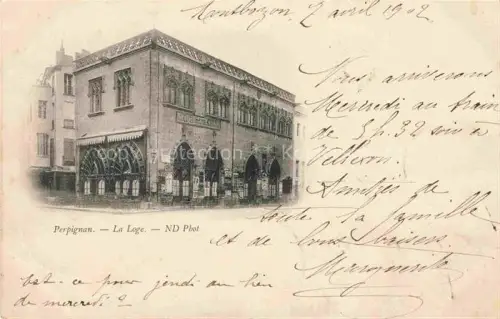 Montbozon, 7 avril 1902
Nous arriverons
Mercredi au train
de 5 h. 32 soir à
Vellexon.
Amitiés de
toute la famille
et de bons baisers
Marguerite
Perpignan. — La Loge. — ND Phot
est-ce pour jeudi au lieu
de mercredi ?